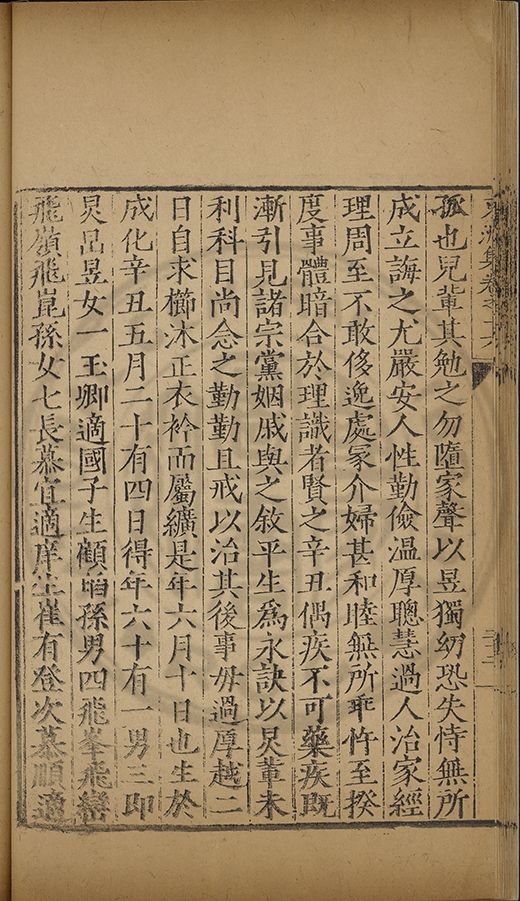 孤也兒輩其勉之勿墮家聲以昱獨幼恐失恃無所
成立誨之尤嚴安人性勤儉溫厚聰慧過人治家經
理周至不敢侈逸處冢介婦甚和睦無所乖忤至揆
度事體暗合於理識者賢之辛丑偶疾不可藥疾既
漸引見諸宗黨姻戚與之敘平生為永訣以炅輩未
利科目尚念之勤勤且戒以治其後事毋過厚越二
日自求櫛沐正衣衿而屬纊是年六月十日也生於
成化辛丑五月二十有四日得年六十有一男三即
炅昱女一玉卿適國子生顧孫男四飛峯飛巒
飛嶺飛崑孫女七長慕宜適庠生崔有登次慕順適